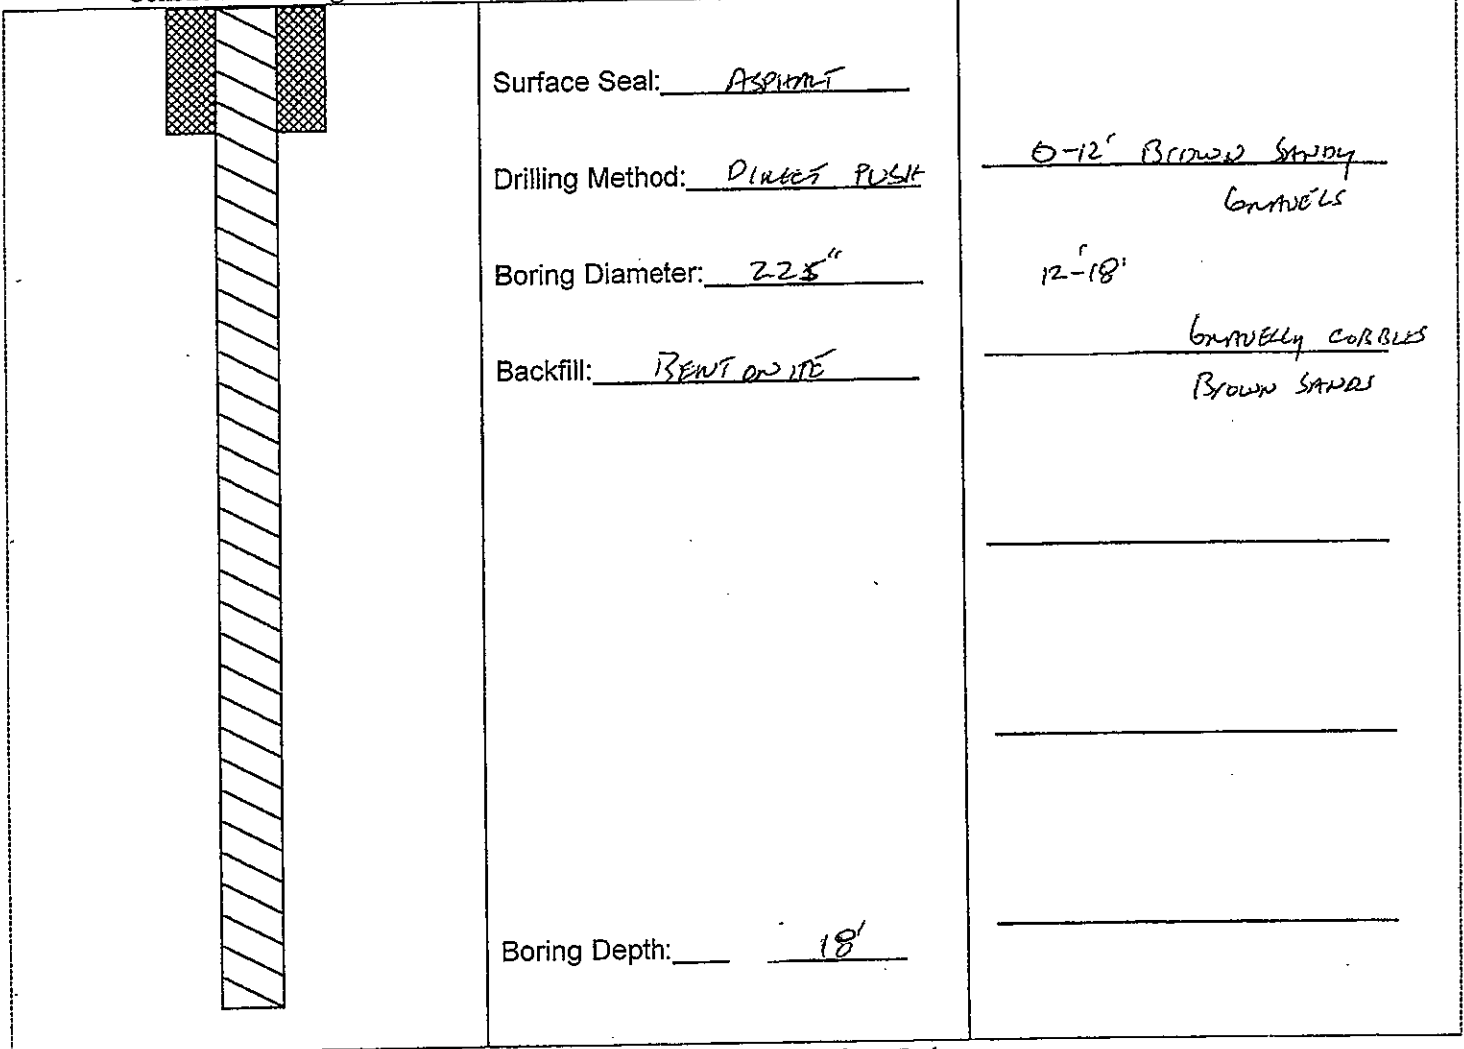 Surface Seal: ASPHALT
Drilling Method: DIRECT PUSH
Boring Diameter: 225"
Backfill: BENTONITE
Boring Depth: 18'
0-12' BROWN SANDY
GRAVELS
12'-18'
GRAVELLY COBBLES
BROWN SANDS